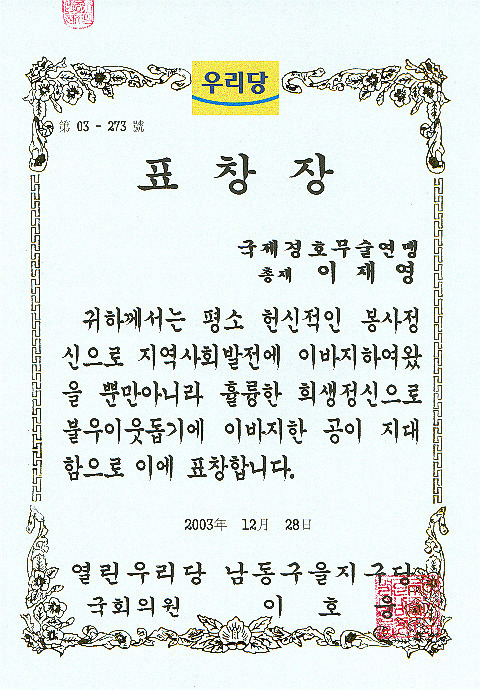 우리당
第 03 - 273 號
표 창 장
국제경호무술연맹
총재 이 재 영
귀하께서는 평소 헌신적인 봉사정
신으로 지역사회발전에 이바지하여왔
을 뿐만아니라 훌륭한 희생정신으로
불우이웃돕기에 이바지한 공이 지대
함으로 이에 표창합니다.
2003年 12月 28日
열린우리당 남동구을지구당
국회의원 이 호 웅